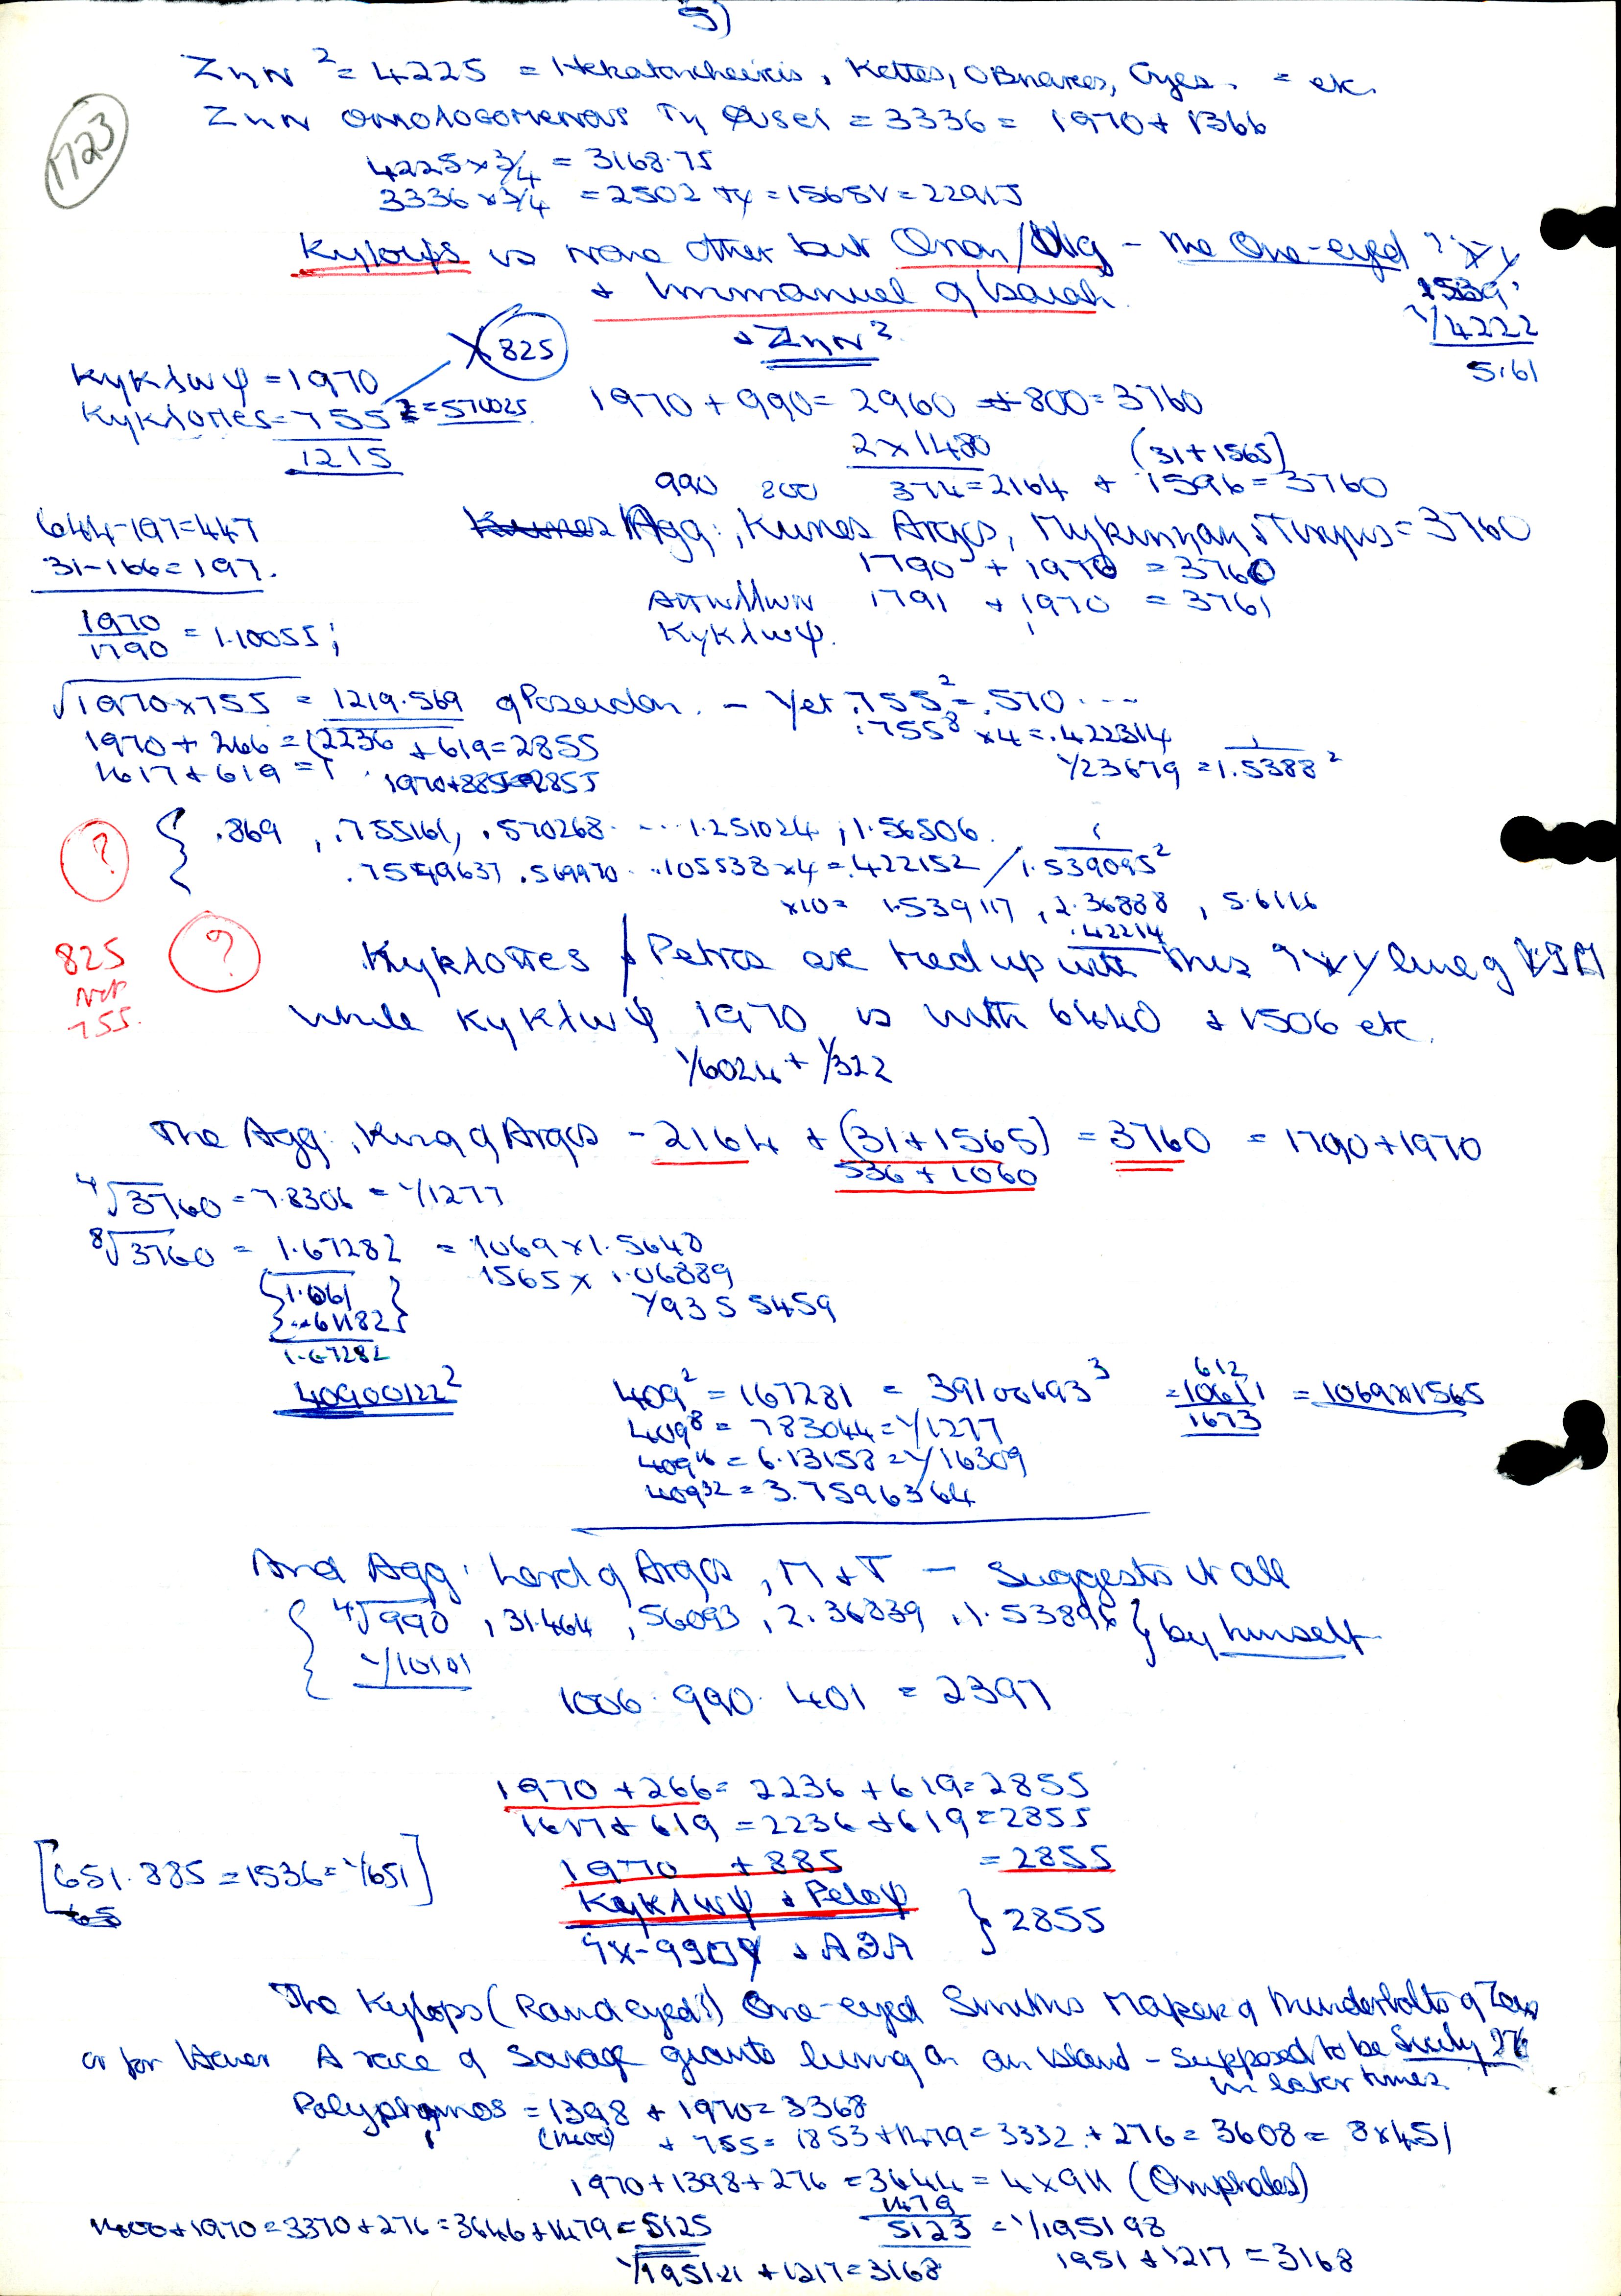 5)
1723
ZηN² = 4225 = Hekatoncheiris, Kottes, OBriareos, Gyes. = etc.
ZηN OMOLOGOMENOUS Tη = 3336 = 1970 + 1366
4225 x 3/4 = 3168.75
3336 x 3/4 = 2502 = 1565 = 22915
Kylops is none other but Onan/Og - the One-eyed
+ Immanuel of Isaiah.
+ ZηN²
1539
1/4222
5.61
X 825
KyKλwψ = 1970
KyKλoπes = 755² = 570025
1215
1970 + 990 = 2960 + 800 = 3760
2 x 1480
(31 + 1565)
990 800 374 = 2164 + 1596 = 3760
644 - 197 = 447
31 - 166 = 197.
Agg:, Kunos Argos, Mykinnay + Tirynns = 3760
1790 + 1970 = 3760
Aπωllωn 1791 + 1970 = 3761
KyKλωψ.
1970/1790 = 1.10055;
√1970 x 755 = 1219.569 of Poseidon. - Yet .755² = .570 ...
.755⁸ x 4 = .422314
1970 + 266 = (2236 + 619 = 2855
1617 + 619 =
1970 + 885 = 2855
1/23679 = 1.5388²
? { .869, .755161, .570268 ... 1.251024, 1.56506.
.7549637 .569970 ..105538 x 4 = .422152 / 1.539095²
x10 = 1.539117, 2.36888, 5.6116
.42214
825
Not
755.
?
KyKλoπes / Petros are tied up with this line of
while KyKλωψ 1970 is with 6440 + 1506 etc.
1/6024 + 1/322
The Agg:, King of Argos - 2164 + (31 + 1565) = 3760 = 1790 + 1970
536 + 1060
⁴√3760 = 7.8306 = 1/1277
⁸√3760 = 1.67282 = 1069 x 1.5648
1565 x 1.06889
1/9355459
{1.061}
{..61182}
1.67282
40900122²
409² = 167281 = 39100693³
612
= 10611 = 1069 x 1565
1673
409⁸ = 783044 = 1/1277
409¹⁶ = 6.13158 = 1/16309
409³² = 3.7596364
And Agg: Lord of Argos, M + T - Suggests it all
{ ⁴√990, 31.464, 56093, 2.36839, 1.53896 } by himself
1/10101
1006. 990. 401 = 2397
1970 + 266 = 2236 + 619 = 2855
1617 + 619 = 2236 + 619 = 2855
[651. 885 = 1536 = 1/651]
1970 + 885 = 2855
KyKλωψ + Peloψ } 2855
The Kylops (Round eyed!) One-eyed Smiths Maker of thunderbolts of Zeus
or for Homer A race of Savage giants living on an island - supposed to be Sicily 276
in later times
Polyphemos = 1398 + 1970 = 3368
(1400) + 755 = 1853 + 1479 = 3332. + 276 = 3608 = 8 x 451
1970 + 1398 + 276 = 3644 = 4 x 911 (Omphalos)
1479
1400 + 1970 = 3370 + 276 = 3646 + 1479 = 5125
5123 = 1/195198
1/195121 + 1217 = 3168
1951 + 1217 = 3168